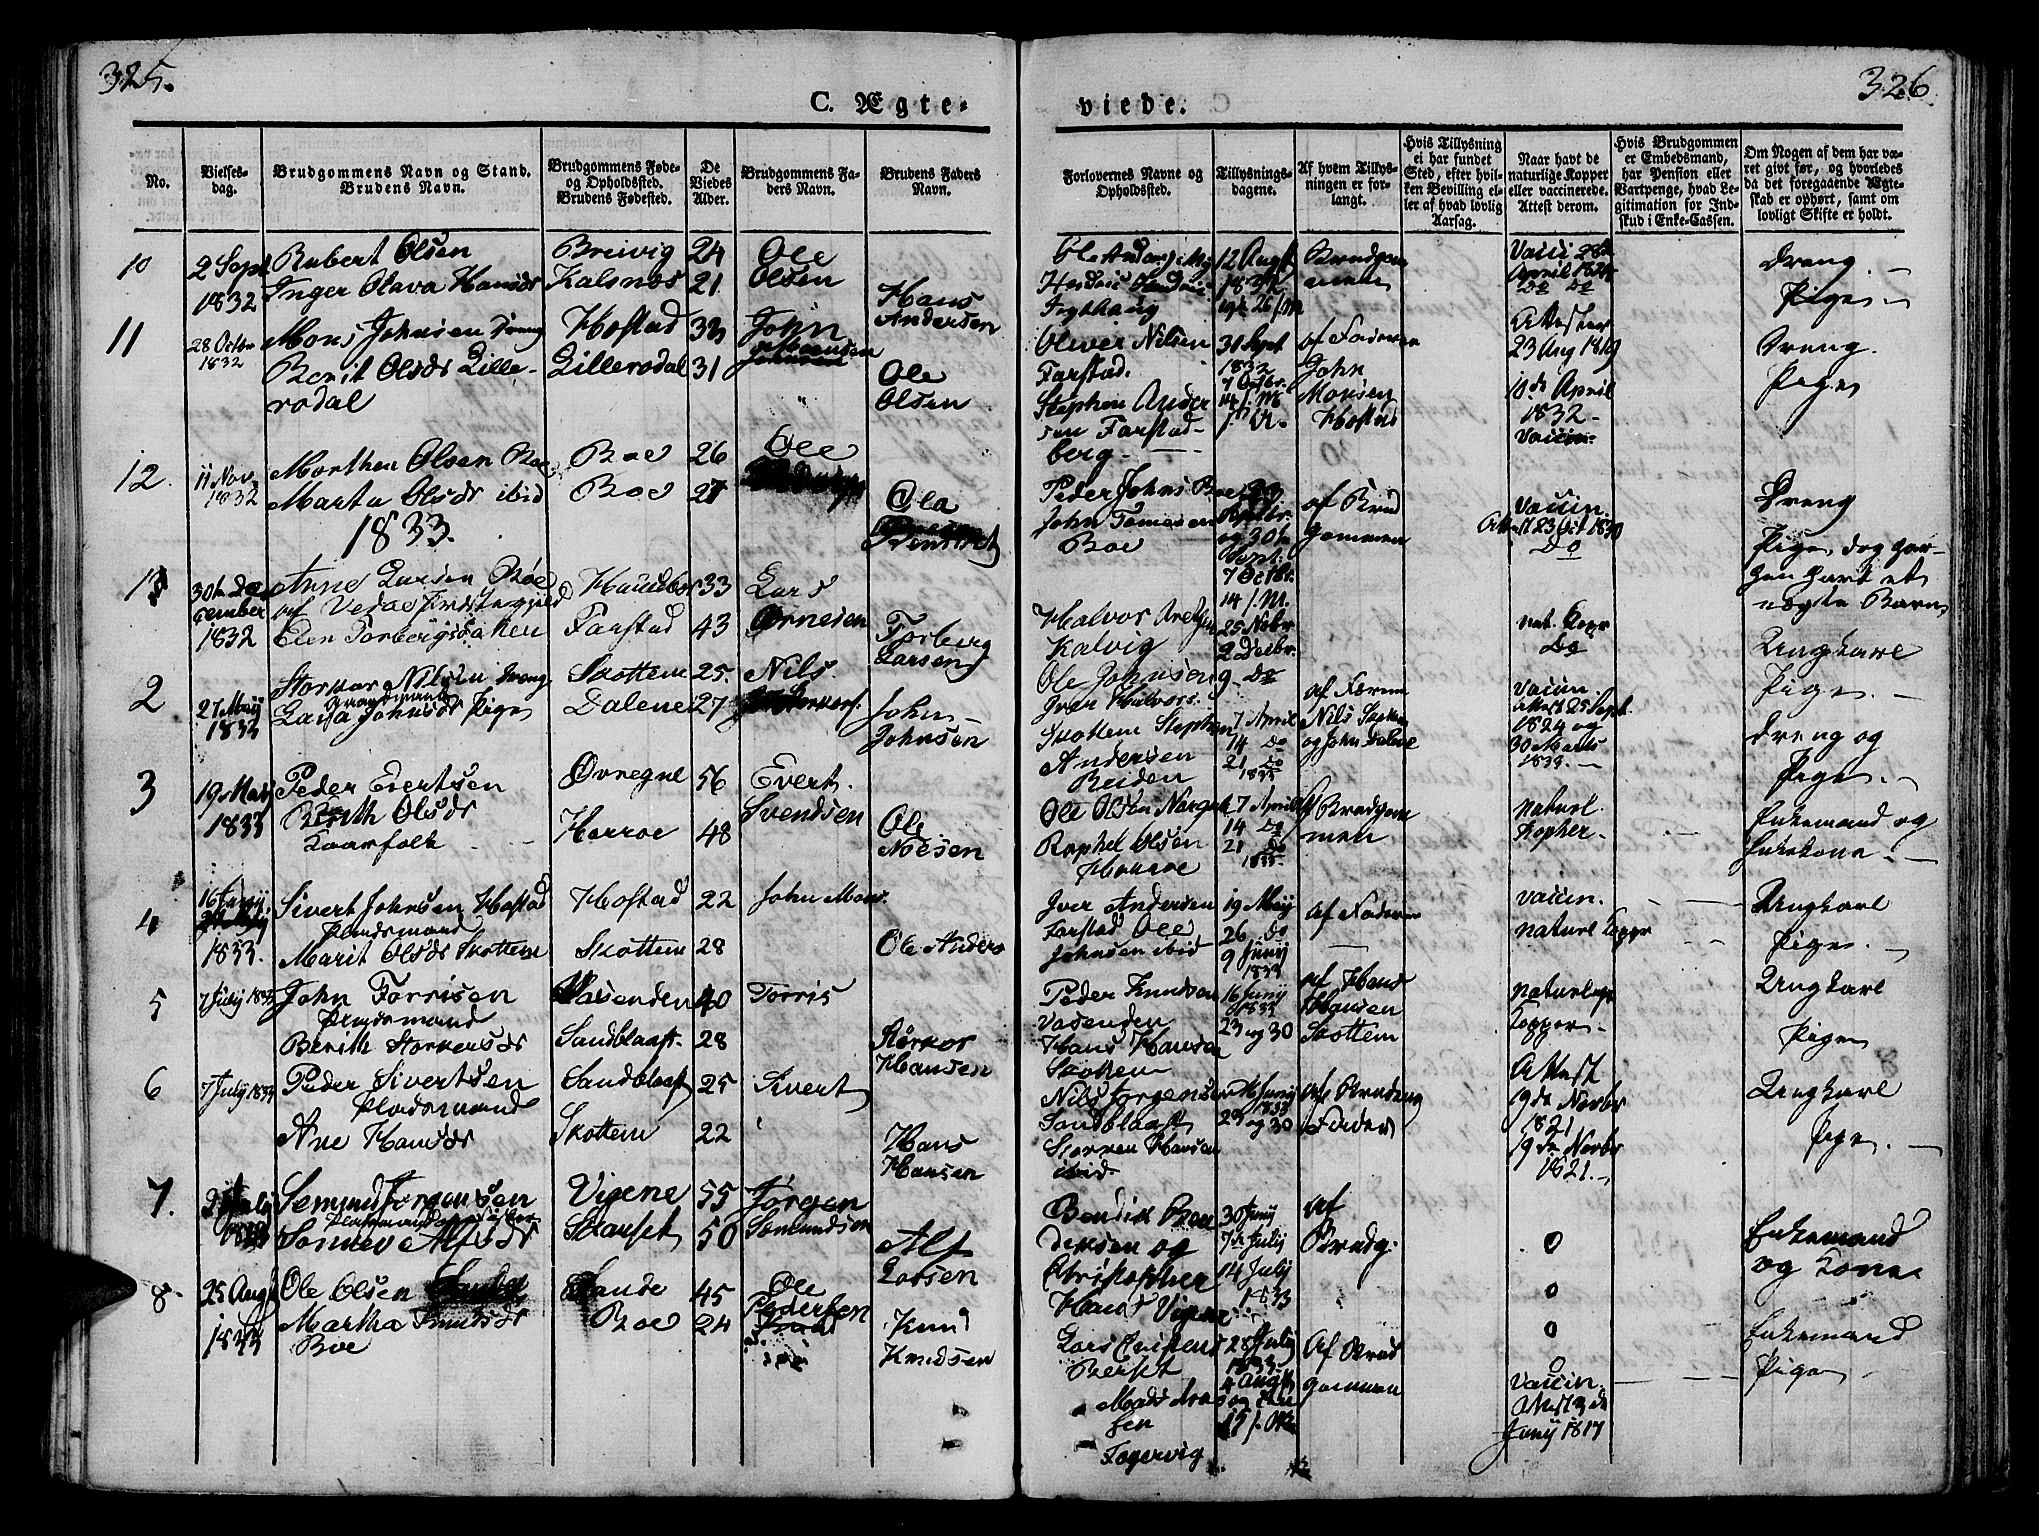 325.
326
C. Ægte-
viede.
No.
Vielses-
dag.
Brudgommens Navn og Stand.
Brudens Navn.
Brudgommens Føde-
og Opholdssted.
Brudens Fødested.
De
Viedes
Alder.
Brudgommens Fa-
ders Navn.
Brudens Faders
Navn.
Forlovernes Navne og
Opholdssted.
Tillysnings-
dagene.
Af hvem Tillys-
ningen er for-
langt.
Hvis Tillysning
ei har fundet
Sted, efter hvil-
ken Bevilling el-
ler af hvad lovlig
Aarsag.
Naar havt de
naturlige Kopper
eller vaccinerede.
Attest derom.
Hvis Brudgommen
er Embedsmand,
har Pension eller
Vartpenge, hvad Le-
gitimation for Ind-
skud i Enke-Cassen.
Om Nogen af dem har væ-
ret givt før, og hvorledes
da det foregaaende Ægte-
skab er ophørt, samt om
lovligt Skifte er holdt.
10
2 Sept
1832
Rubert Olsen
Inger Olava Hansdr
Breivig
Kalsnes
24
21
Ole
Olsen
Hans
Andersen
12 Augt
1832
Brudgom
men
Vacci 28de
April 1824
Do Do
Dreng. -
Pige. -
11
28 Octbr
1832
Mons Johnsen Dreng
Berit Olsdr Lille-
rodal
Hostad
Lillerodal
33
31
John
Monsen
Ole
Olsen
Oliver Nilsen
Farstad.
Stephen Ander
sen Farstad-
berg.
31 Sept
1832
7 Octbr.
14 f. M.
af Faderen
John
Monsen
Hostad
Attester
23 Aug 1819
10de April
1832 -
vaccin.
Dreng.
Pige
12.
11 Nov.
1832
Morthen Olsen Boe
Marta Olsdr ibid
Boe
Boe
26
27
Ole
Ola
Peder Johns Boe
John Tomesen
Boe
og 30te
Sept.
7 Octbr.
14 f. M.
af Brud
gommen
Vaccin.
Attest 23 Oct 1830
Do
Dreng
Pige, dog har
hun havt et
uægte Barn
1833.
1
30te De
cember
1832
Arne Larsen Boe
af Vedøe Præstegield
Elen Torbergsd. enken
Farstad
33
43
Lars
Arnesen
Torberg
Larsen
Halvor
Kalvig
Ole Johnsen
25 Nobr
2 Decbr.
9 Do
nat. Kopr
Do
Ungkarl
Pige. -
2
27 Maij
1833
Storker Nilsen Dreng
Gaardmand
Lassa Johnsdr Pige
Skottem
Dalene
25.
27
Nils
Storkers.
John
Johnsen
Iver Halvors.
Skottem Stephen
Andersen
Reiden
7 April
14 Do
21 Do
1833
Nils Storkers
og John Dalene
Vaccin.
attest 25 Sept
1824 og
30 Marts
1833. -
Dreng og
Pige. -
3
19 Maij
1833
Peder Evertsen
Berith Olsdr
Kaarfolk -
Øvregne
Harroe
56
48
Evert.
Svendsen
Ole
Nielsen
Ole Olsen
Raphel Olsen
Harroe
7 April
14 Do
21 Do
1833
af Brudgom
men
Naturl.
Kopher.
Enkemand og
Enkekone. -
4
16 Junij
1833.
Sivert Johnsen Hostad
Pladsmand
Marit Olsdr Skottem
Hostad
Skottem
22
28
John Mons.
Ole Anders
Iver Andersen
Farstad Ole
Johnsen ibid
19 Maij
26 Do
9 Junij
1833
af Faderen
vaccin.
naturl Kopr
Ungkarl
Pige. -
5
7 Julij 1833
John Torrisen
Pladsmand
Berith Storkersdr
Vasenden
Sandblaast.
40
28
Torris
Storkor
Hansen
Peder Knudsen
Vasenden
Hans Hansen
Skottem
16 Junij
1833
23 og 30
af Hans
Hansen
Skottem
naturlige
Kopper -
Ungkarl
Pige
6
7 Julij 1833
Peder Sivertsen
Pladsmand
Ane Hansdr
Sandblaast
Skottem
25
22
Sivert
Hans
Hansen
Nils Jorgensen
Sandblaast
Storren Hansen
ibid.
16 Junij
1833
23 og 30
Fader
Attest
19de Novbr
1821
19de Novbr
1821. -
Ungkarl
Pige. -
7.
1833
Semund Jorgensen
Sonnev Alfsdr
Vigene
Slarset
55
50
Jørgen
Semundsen
Alf
Larsen
Bendik Ben
diksen og
Christopher
Hans Vigene
30 Junij
7de Julij
14 Julij
1833
af
Brudg.
0
0
Enkemand
og Kone
8.
25 Augt
1833
Ole Olsen
Martha Knudsdr
Boe
Sande
Boe
45
24
Ole
Pedersen
Knud
Knudsen
Berset
Mads
sen
Fagervig
28 Julij
1833
4 Augt
Af Brud
gommen
0
0
vaccin.
Attest 3 de
Junij 1817
Enkemand
Pige -